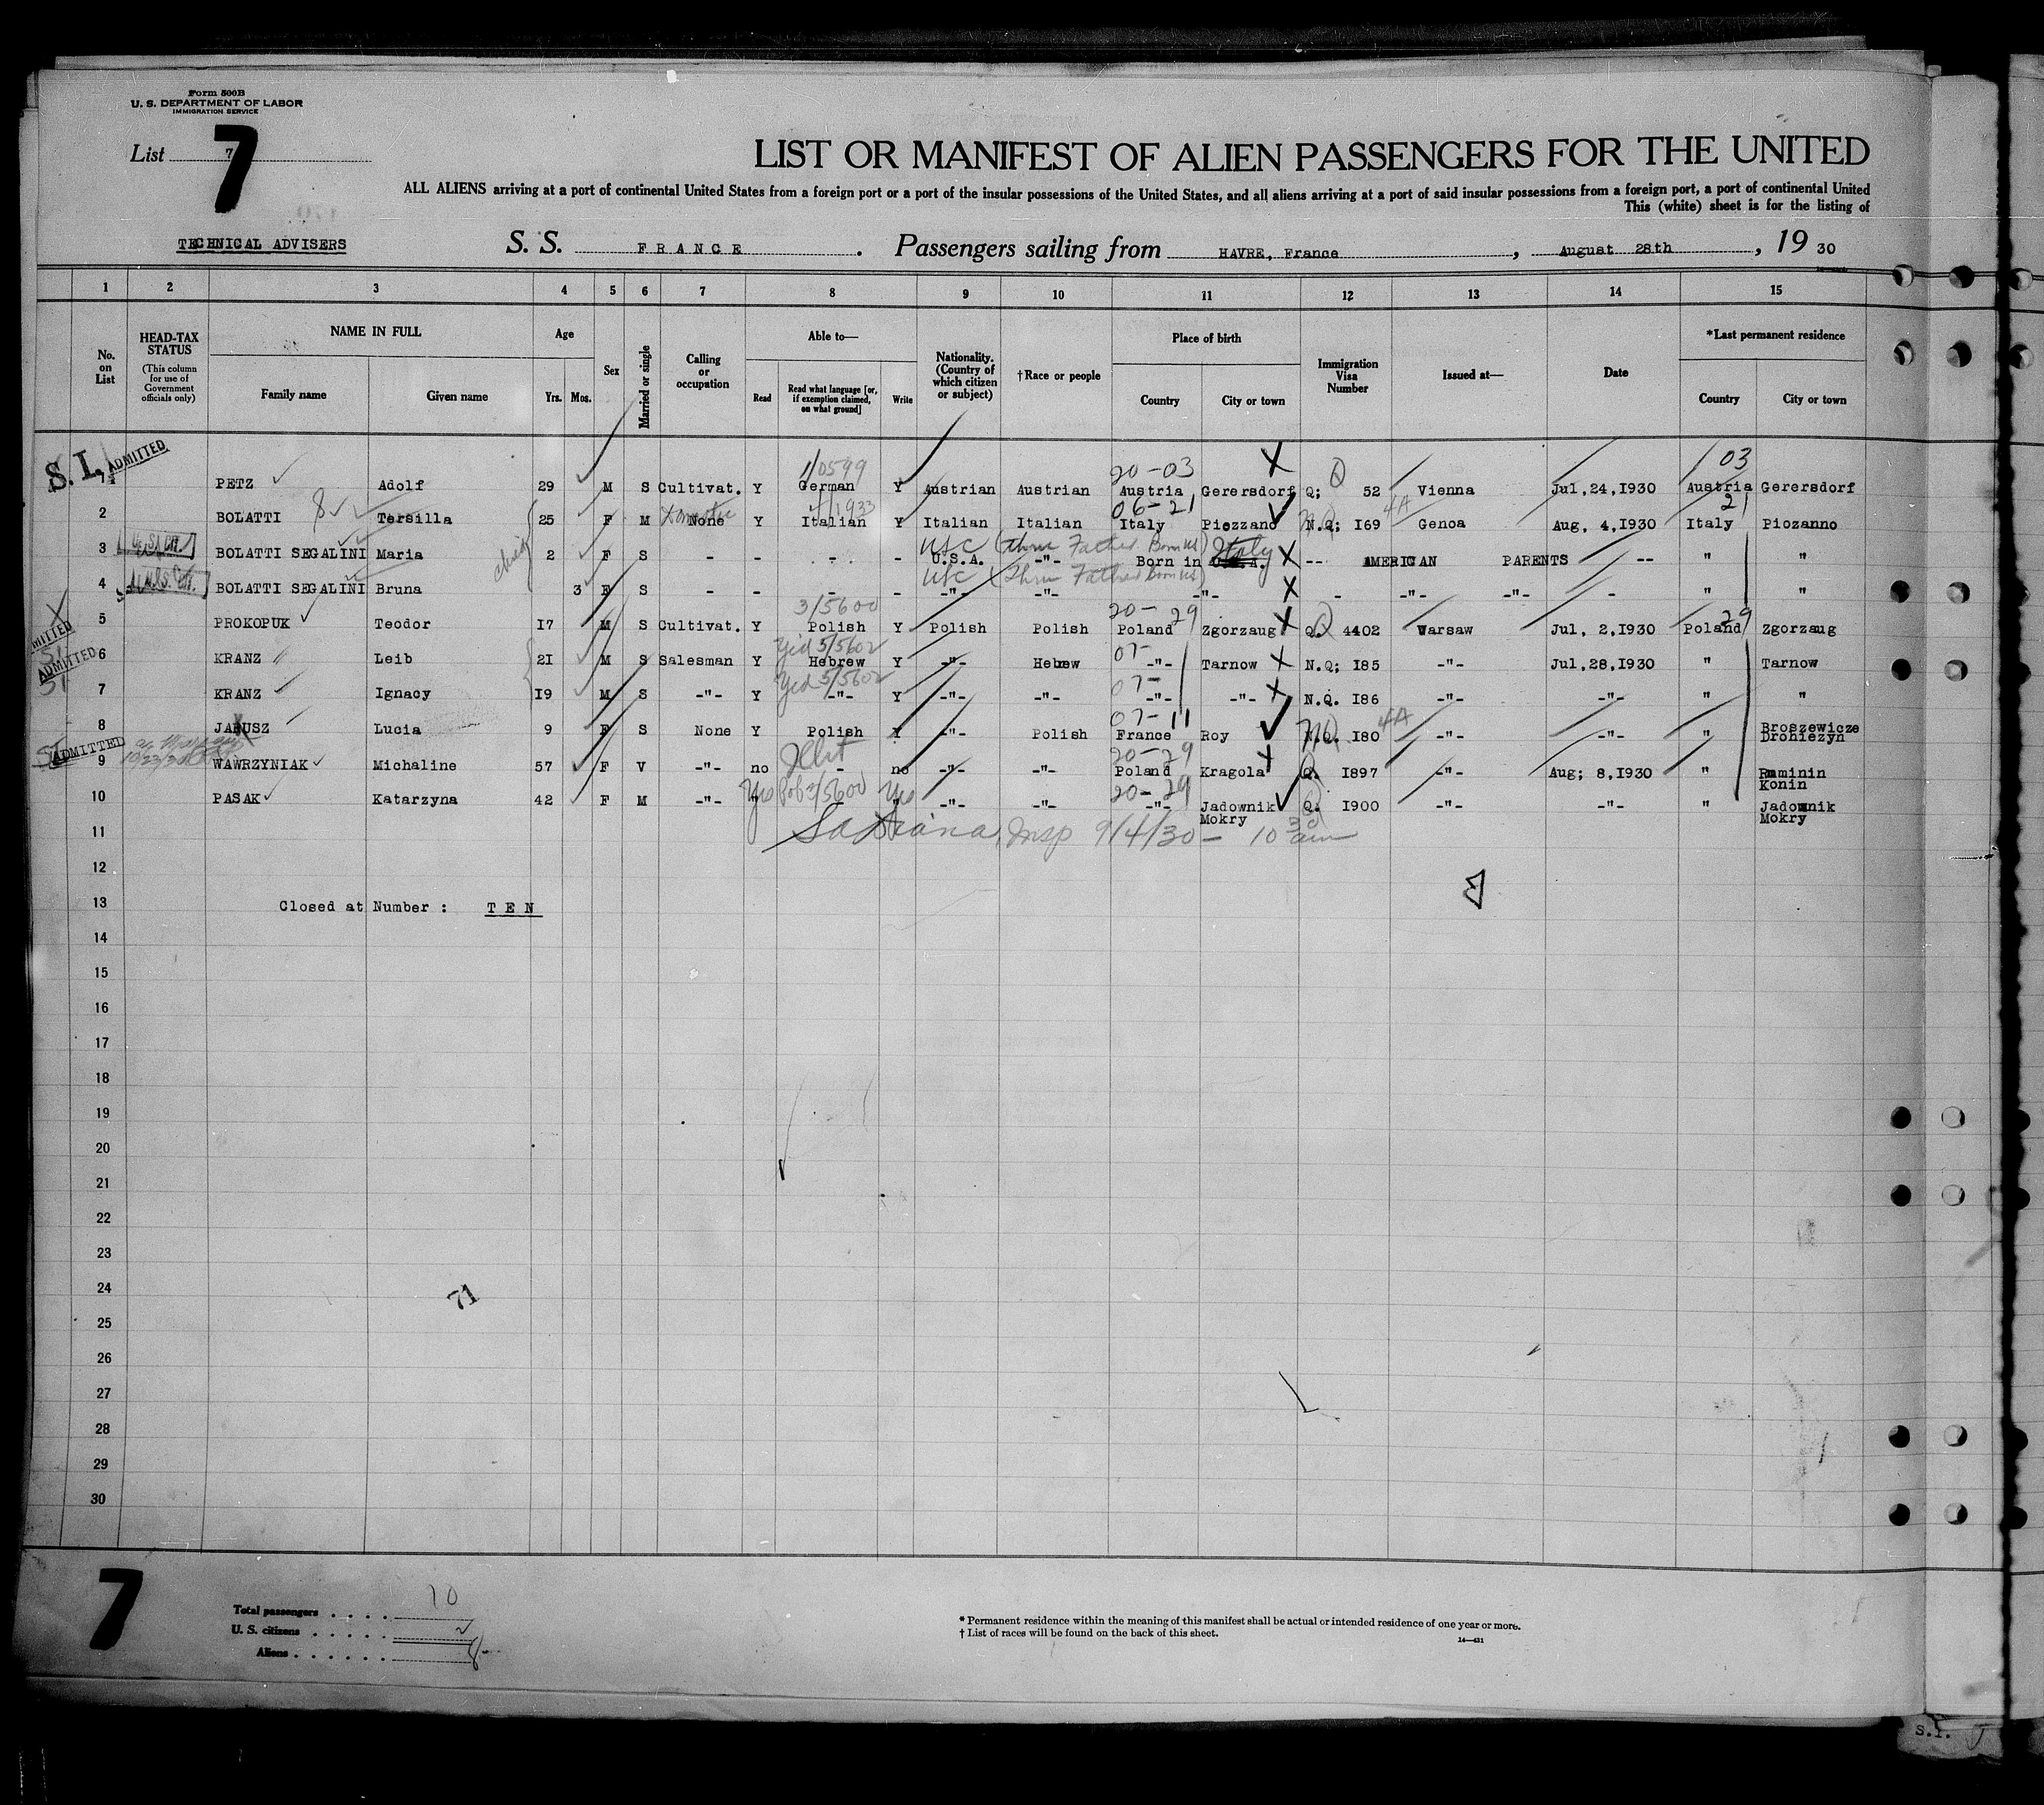 Form 500B
U. S. DEPARTMENT OF LABOR
IMMIGRATION SERVICE
List 7
7
LIST OR MANIFEST OF ALIEN PASSENGERS FOR THE UNITED
ALL ALIENS arriving at a port of continental United States from a foreign port or a port of the insular possessions of the United States, and all aliens arriving at a port of said insular possessions from a foreign port, a port of continental United
This (white) sheet is for the listing of
TECHNICAL ADVISERS S. S. FRANCE. Passengers sailing from HAVRE, France, August 28th, 19 30
1 2 3 4 5 6 7 8 9 10 11 12 13 14 15
No. on List
HEAD-TAX STATUS (This column for use of Government officials only)
NAME IN FULL
Family name Given name
Age
Yrs. Mos.
Sex
Married or single
Calling or occupation
Able to—
Read
Read what language [or, if exemption claimed, on what ground]
Write
Nationality. (Country of which citizen or subject)
†Race or people
Place of birth
Country City or town
Immigration Visa Number
Issued at—
Date
*Last permanent residence
Country City or town
S. I. ADMITTED
1/0599 20-03 X Q 03
1 PETZ Adolf 29 M S Cultivat. Y German Y Austrian Austrian Austria Gerersdorf Q; 52 Vienna Jul,24,1930 Austria Gerersdorf
Domestic 1/1933 06-21 4A 21
2 BOLATTI Tersilla 25 F M None Y Italian Y Italian Italian Italy Piozzano N.Q; I69 Genoa Aug, 4,1930 Italy Piozanno
U.S. CIT. USC (Thru Father Born US) Italy
3 BOLATTI SEGALINI Maria 2 F S - - - - U.S.A. -"- Born in U.S.A. X -- AMERICAN PARENTS -- " "
U.S. CIT. USC (Thru Father Born US)
4 BOLATTI SEGALINI Bruna 3 F S - - - - -"- -"- -"- X - -"- -"- - " "
3/5600 20-29 29
5 PROKOPUK Teodor I7 M S Cultivat. Y Polish Y Polish Polish Poland Zgorzaug X Q. 4402 Warsaw Jul, 2,1930 Poland Zgorzaug
ADMITTED SI Yid 5/5602 07-
6 KRANZ Leib 2I M S Salesman Y Hebrew Y -"- Hebrew -"- Tarnow X N.Q; I85 -"- Jul,28,1930 " Tarnow
ADMITTED SI Yid 5/5602 07-
7 KRANZ Ignacy I9 M S -"- Y -"- Y -"- -"- -"- -"- X N.Q. I86 -"- -"- " "
07-11 4A
8 JABUSZ Lucia 9 F S None Y Polish Y -"- Polish France Roy N.Q. I80 -"- -"- " Broszewicze Droniezyn
SI ADMITTED Illit 20-29
9 WAWRZYNIAK Michaline 57 F V -"- no - no -"- -"- Poland Kragola X Q. I897 -"- Aug; 8,1930 " Raminin Konin
Yes 3/5600 Yes 20-29
10 PASAK Katarzyna 42 F M -"- " - " -"- -"- -"- Jadownik Mokry Q. I900 -"- -"- " Jadownik Mokry
11
Insp 9/4/30 - 10 30 am
12
13 Closed at Number : TEN
14
15
16
17
18
19
20
21
22
23
24
71
25
26
27
28
29
30
7
Total passengers 10
U. S. citizens 2
Aliens 8
* Permanent residence within the meaning of this manifest shall be actual or intended residence of one year or more.
† List of races will be found on the back of this sheet.
14—421
S.I.